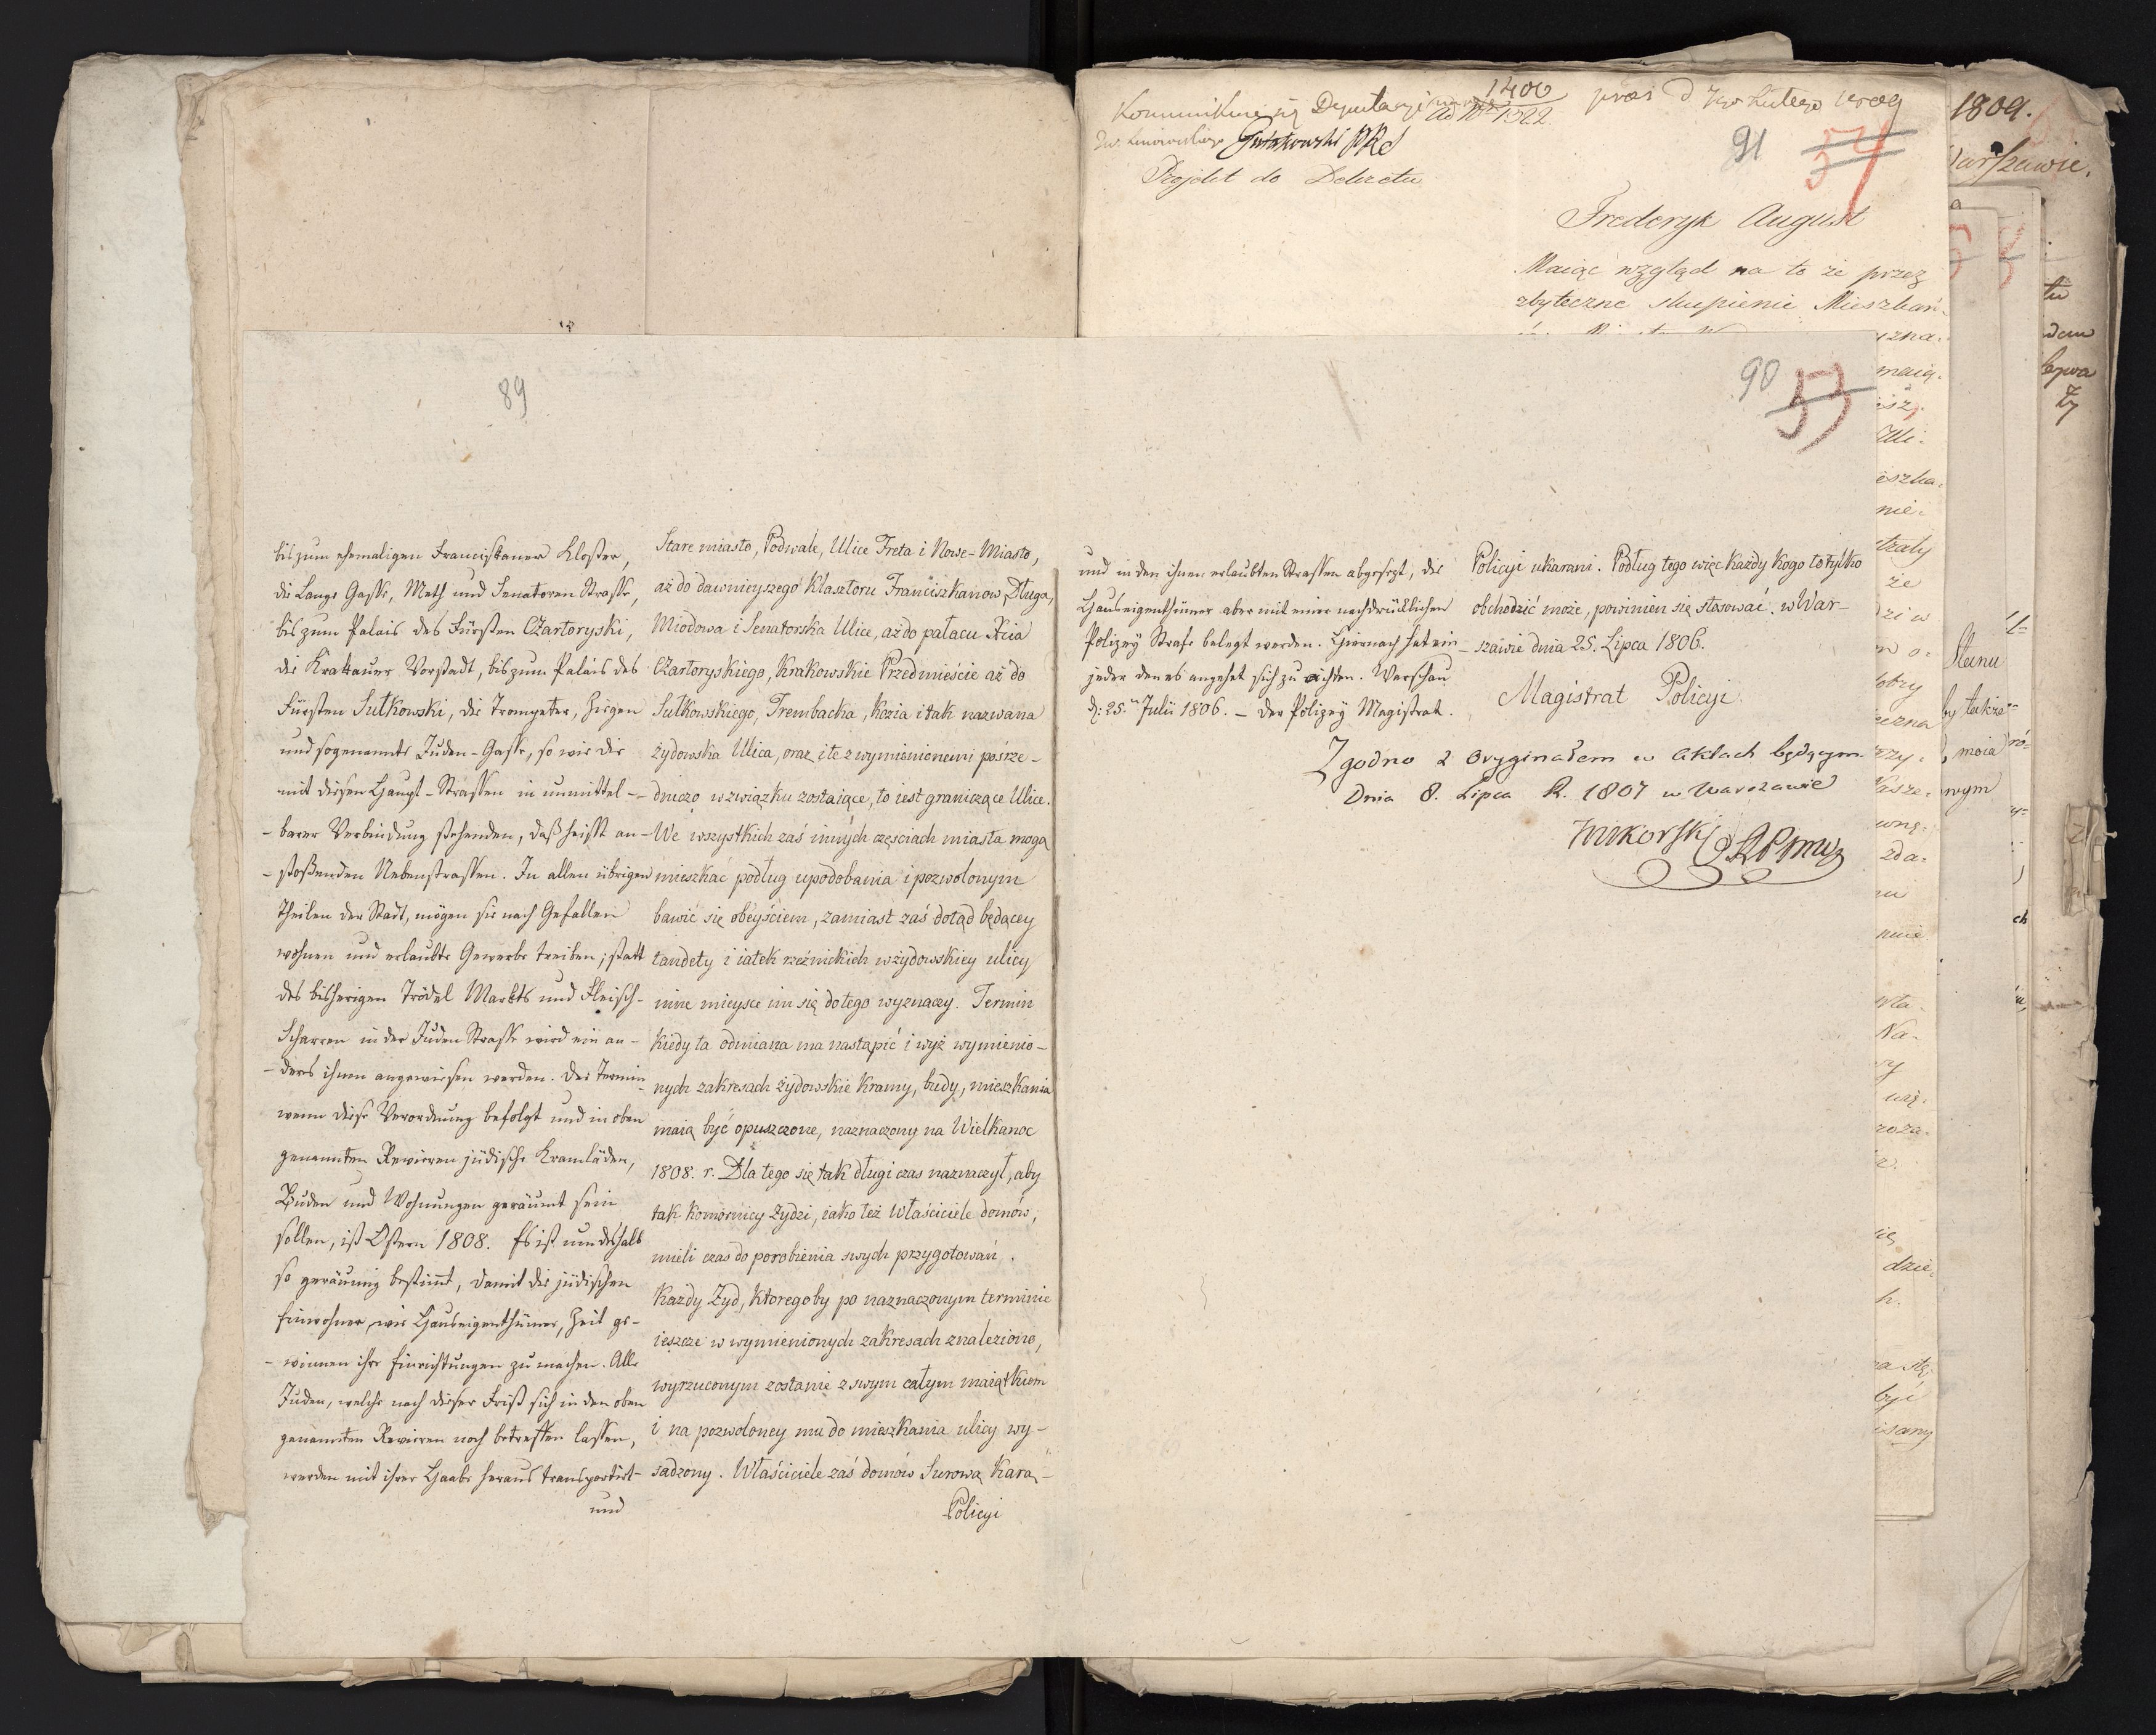 89
bis zum ehemaligen Franciskaner Kloster,
die Lange Gasse, Meth und Senatoren Strasse,
bis zum Palais des Fürsten Czartoryski,
die Krakauer Vorstadt, bis zum Palais des
Fürsten Sułkowski, die Trompeter, Ziegen
und sogenannte Juden-Gasse, so wie die
mit diesen Haupt-Strassen in unmittel-
-barer Verbindung stehenden, daß heißt an-
-stoßenden Nebenstrassen. In allen übrigen
Theilen der Stadt, mögen sie nach Gefallen
wohnen und erlaubte Gewerbe treiben; statt
des bisherigen Trödel Markts und Fleisch-
Scharren in der Juden Strasse wird ein an-
-deres ihnen angewiesen werden. Der Termin
wenn diese Verordnung befolgt und in oben
genannten Revieren jüdische Kramläden,
Buden und Wohnungen geräumt sein
sollen, ist Ostern 1808. Es ist um deshalb
so geräumig bestimt, damit die jüdischen
Einwohner, wie Hauseigenthümer, Zeit ge-
-winnen ihre Einrichtungen zu machen. Alle
Juden, welche nach dieser Frist sich in den oben
genannten Revieren noch betreffen lassen,
werden mit ihrer Haabe heraus transportirt
und
Stare miasto, Podwale, Ulice Freta i Nowe-Miasto,
aż do dawnieyszego Klasztoru Franciszkanow, Długa,
Miodowa i Senatorska Ulice, aż do pałacu Xcia
Czartoryskiego, Krakowskie Przedmieście aż do
Sułkowskiego, Trembacka, Kozia i tak nazwana
żydowska Ulica, oraz i te z wymienionemi posrze-
dniczo w związku zostaiące, to iest graniczące Ulice.
We wszystkich zaś innych częsciach miasta mogą
mieszkać podług upodobania i pozwolonym
bawić się obeyściem, zamiast zaś dotąd będącey
tandety i iatek rzeźnickich w żydowskiey ulicy
inne mieysce im się do tego wyznaczy. Termin
Kiedy ta odmiana ma nastąpić i wyż wymienio-
nych zakresach żydowskie Kramy, budy, mieszkania
maią być opuszczone, naznaczony na Wielkanoc
1808. r. Dla tego się tak długi czas naznaczył, aby
tak Komornicy Zydzi, iako też Właściciele domów,
mieli czas do porobienia swych przygotowań.
Każdy Zyd, Ktoregoby po naznaczonym terminie
ieszcze w wymienionych zakresach znaleziono,
wyrzuconym zostanie z swym całym maiątkiem
i na pozwoloney mu do mieszkania ulicy wy-
sadzony. Właściciele zaś domów Surową Karą
Policyi
Kommunikuie się Deputacyi
1400
ad Nr 1522.
Gutakowski PRS
Projekt do Dekretu
91
54
Fryderyk August
Maiąc wzgląd na to że przez
zbyteczne skupienie Mieszkań-
90
53
und in den ihnen erlaubten Strassen abgesezt, die
Hauseigenthümer aber mit einer nachdrücklichen
Polizey Strafe belegt werden. Hiernach hat ein
jeder den es angehet sich zu achten. Warschau
d: 25.ten Julii 1806. – Der Polizey Magistrat.
Policyi ukarani. Podług tego więc każdy kogo to tylko
obchodzić może, powinien się stosować. w War-
szawie dnia 25. Lipca 1806.
Magistrat Policyi.
Zgodno z Oryginałem w aktach będącym
Dnia 8. Lipca R. 1807 w Warszawie
1809.
Warszawie.
Stanu
by także
, moia
wym